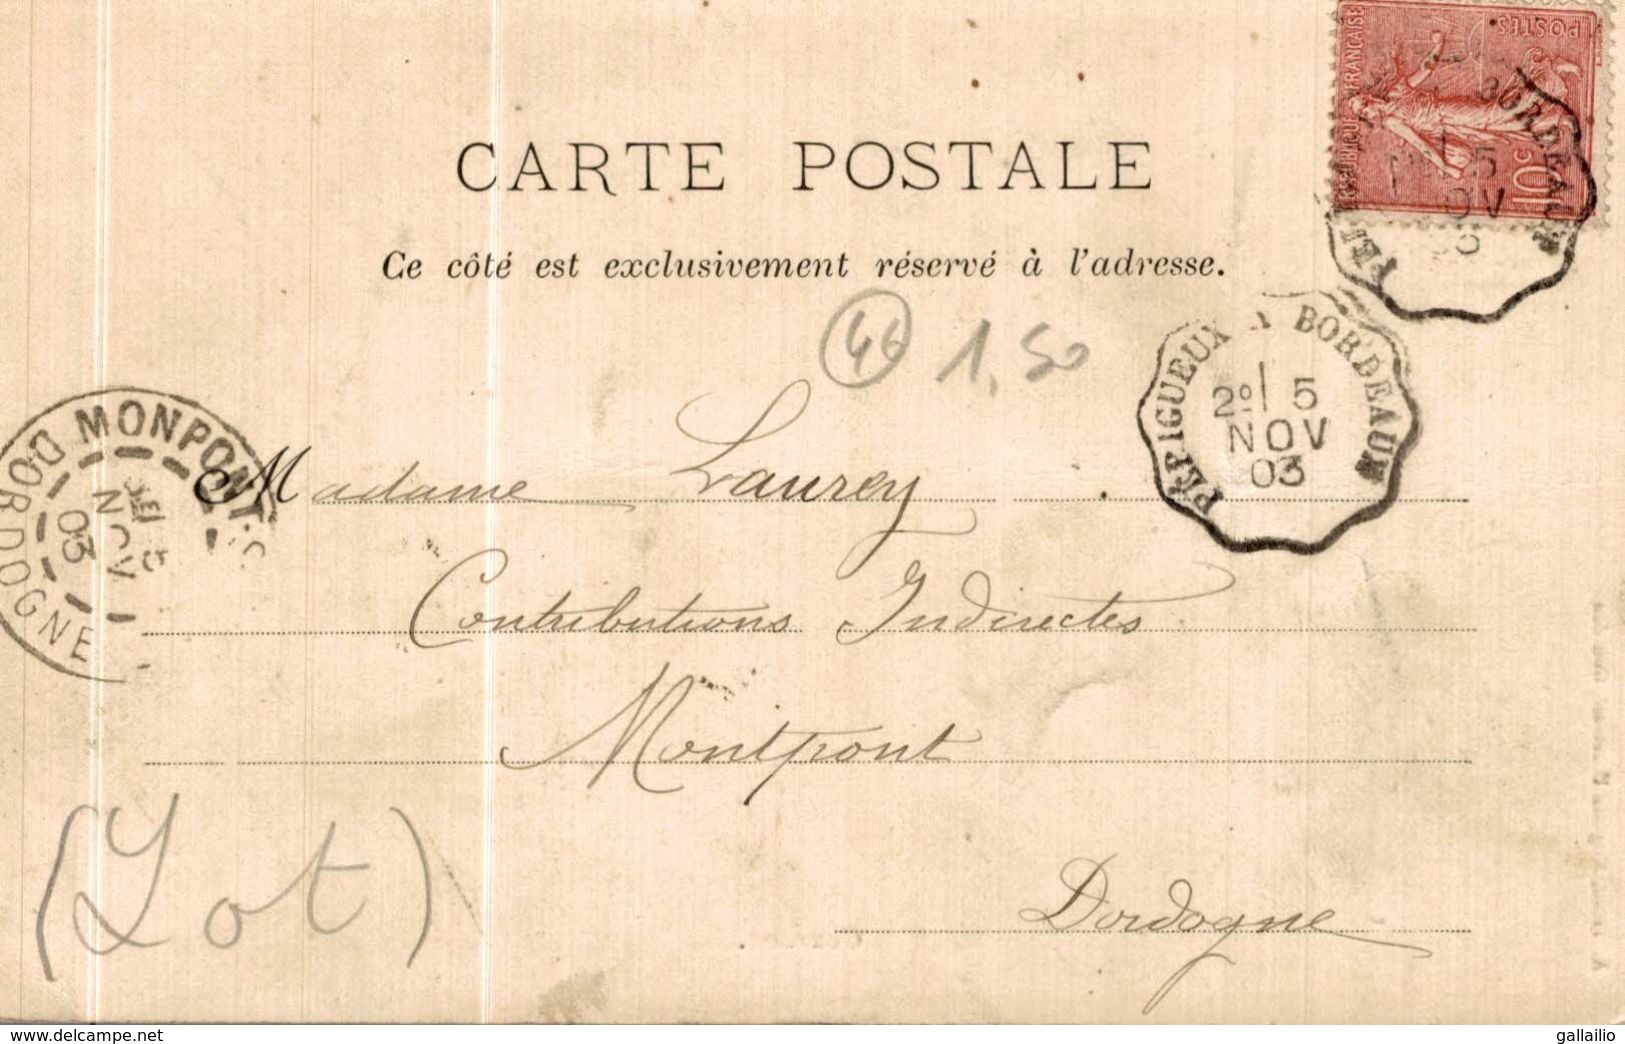 RÉPUBLIQUE FRANÇAISE
POSTES
10c
BORDEAUX
5
CARTE POSTALE
Ce côté est exclusivement réservé à l'adresse.
46 1,50
PÉRIGUEUX A BORDEAUX
2º 5
NOV
03
MONPONT
DORDOGNE
NOV
03
Madame Laurey
Contributions Indirectes
Montpont
(Lot)
Dordogne
delcampe.net
gallailio